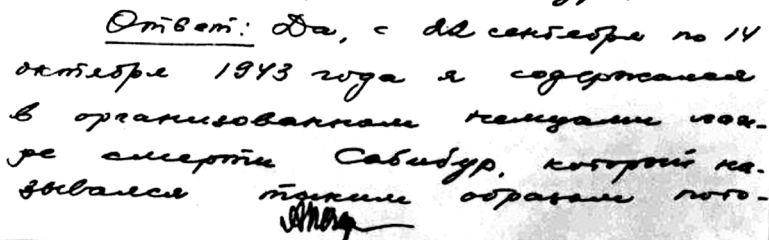 Ответ: Да, с 22 сентября по 14
октября 1943 года я содержался
в организованном немцами лаге-
ре смерти Сабибур, который на-
зывался таким образом пото-